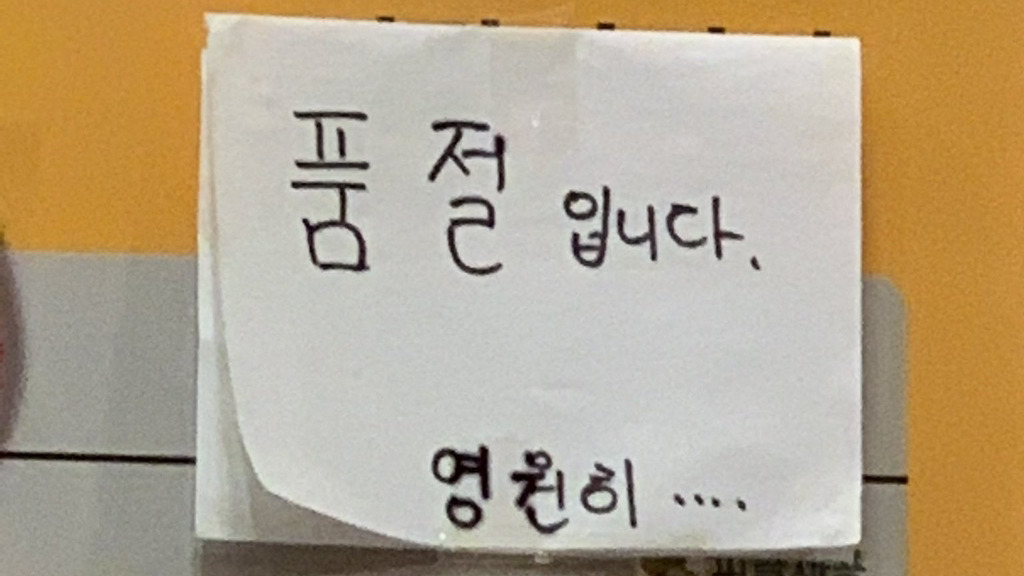 품절입니다.
영원히....